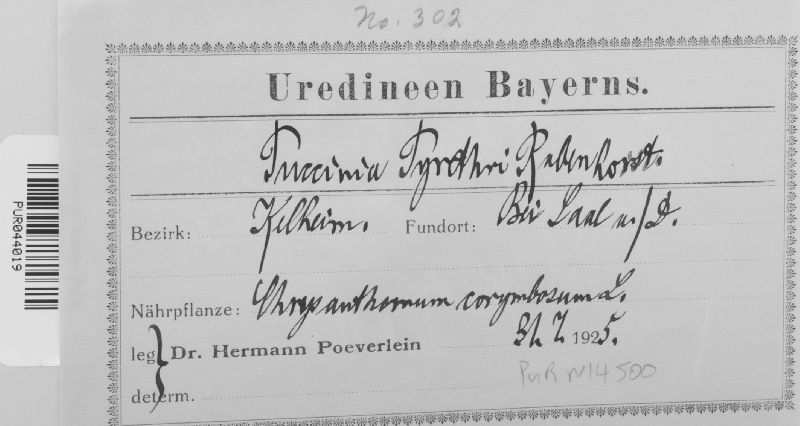 No. 302
Uredineen Bayerns.
Puccinia Pyrethri Rabenhorst.
Bezirk: Kelheim. Fundort: Bei Saal a./D.
Nährpflanze: Chrysanthemum corymbosum L.
leg. Dr. Hermann Poeverlein 31. 7. 1925.
PUR N14500
determ.
PUR044019